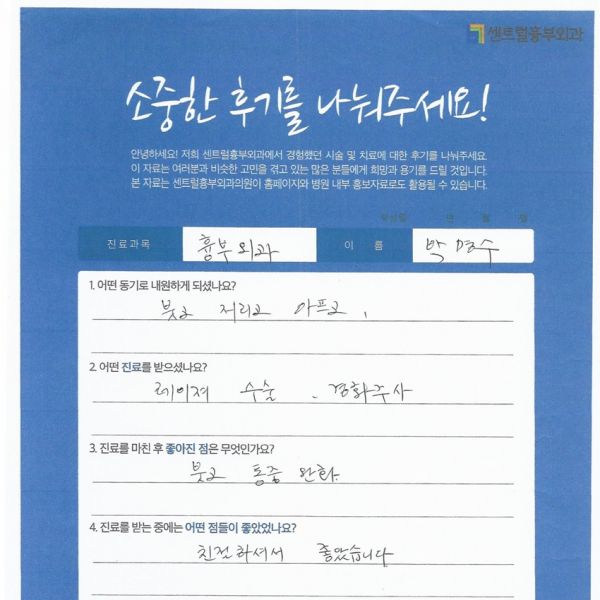 센트럴흉부외과
소중한 후기를 나눠주세요!
안녕하세요! 저희 센트럴흉부외과에서 경험했던 시술 및 치료에 대한 후기를 나눠주세요.
이 자료는 여러분과 비슷한 고민을 겪고 있는 많은 분들에게 희망과 용기를 드릴 것입니다.
본 자료는 센트럴흉부외과의원이 홈페이지와 병원 내부 홍보자료로도 활용될 수 있습니다.
작성일 년 월 일
진료과목 흉부외과 이 름 박명수
1. 어떤 동기로 내원하게 되셨나요?
붓고 저리고 아프고,
2. 어떤 진료를 받으셨나요?
레이져 수술 、 경화주사
3. 진료를 마친 후 좋아진 점은 무엇인가요?
붓고 통증 완화.
4. 진료를 받는 중에는 어떤 점들이 좋았었나요?
친절하셔서 좋았습니다